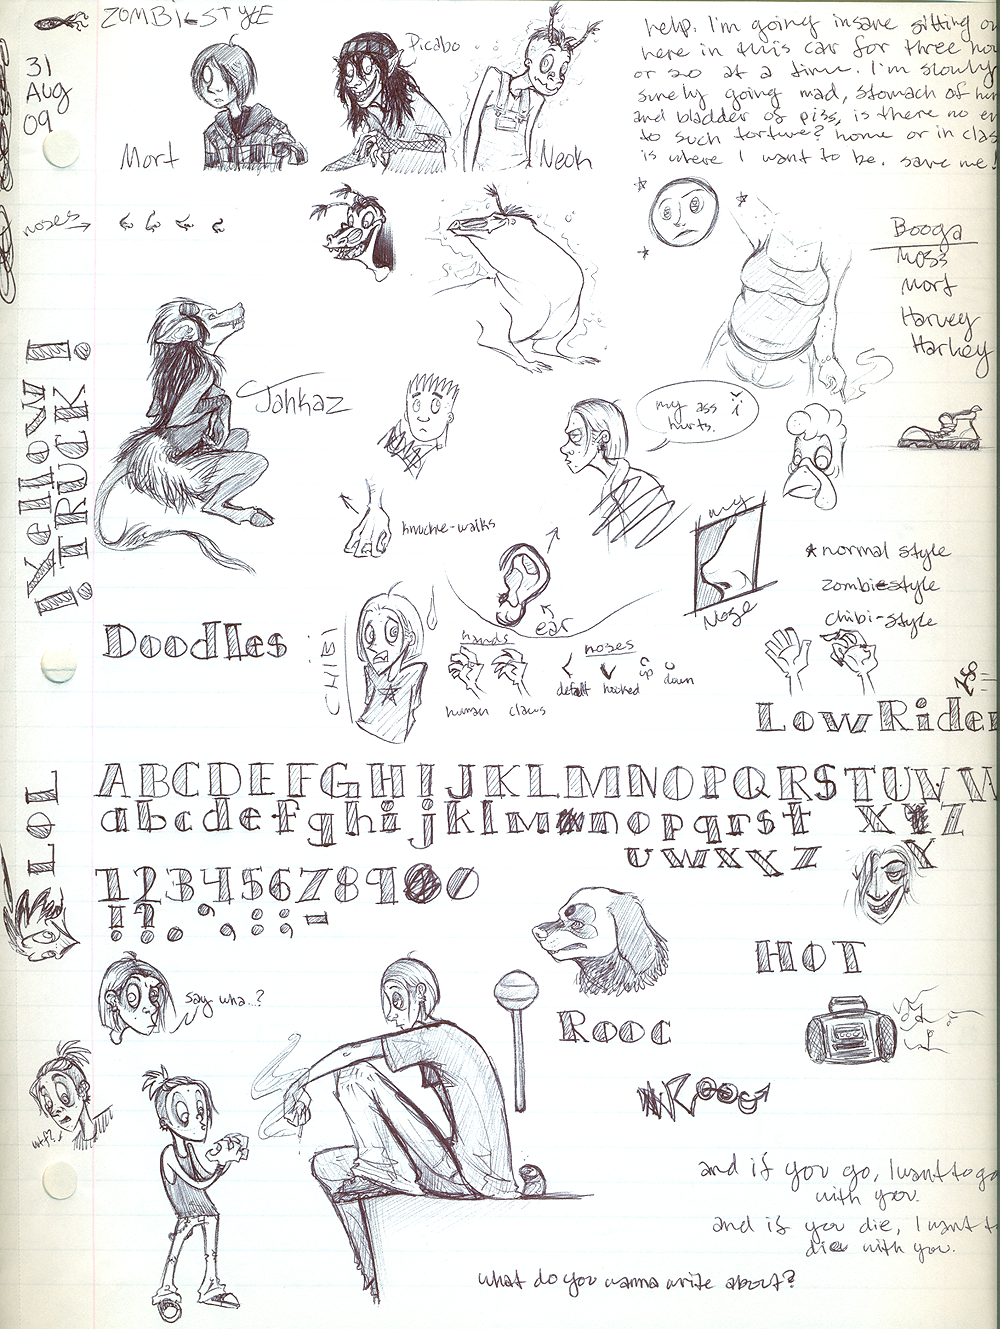 ZOMBIESTYLE
31
Aug
09
Mort
Picabo
Neoh
help. I'm going insane sitting
here in this car for three
or so at a time. I'm slowly
surely going mad, stomach of
and bladder of piss, is there no
to such torture? home or in
is where I want to be. save me.
noses
Booga
Moss
Mort
Harvey
Harkey
¡Yellow
¡TRUCK!
Jahkaz
my ass
hurts.
knuckle-walks
ear
my
Nose
*normal style
zombiestyle
chibi-style
Doodles
CHIBI
hands
human
claws
noses
default
hooked
up
down
LowRider
LOL
ABCDEFGHIJKLMNOPQRSTUVW
abcdefghijklmnopqrst XYZ
uvwxyz Y
1234567890
!?. , : ; -
HOT
say wha...?
Rooc
Rooc
wtf?
and if you go, I want to go
with you.
and if you die, I want to
die with you.
what do you wanna write about?